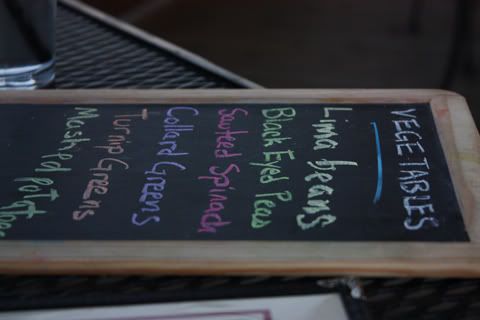 VEGETABLES
Lima beans
Black Eyed Peas
Sauteed Spinach
Collard Greens
Turnip Greens
Mashed Potatoes